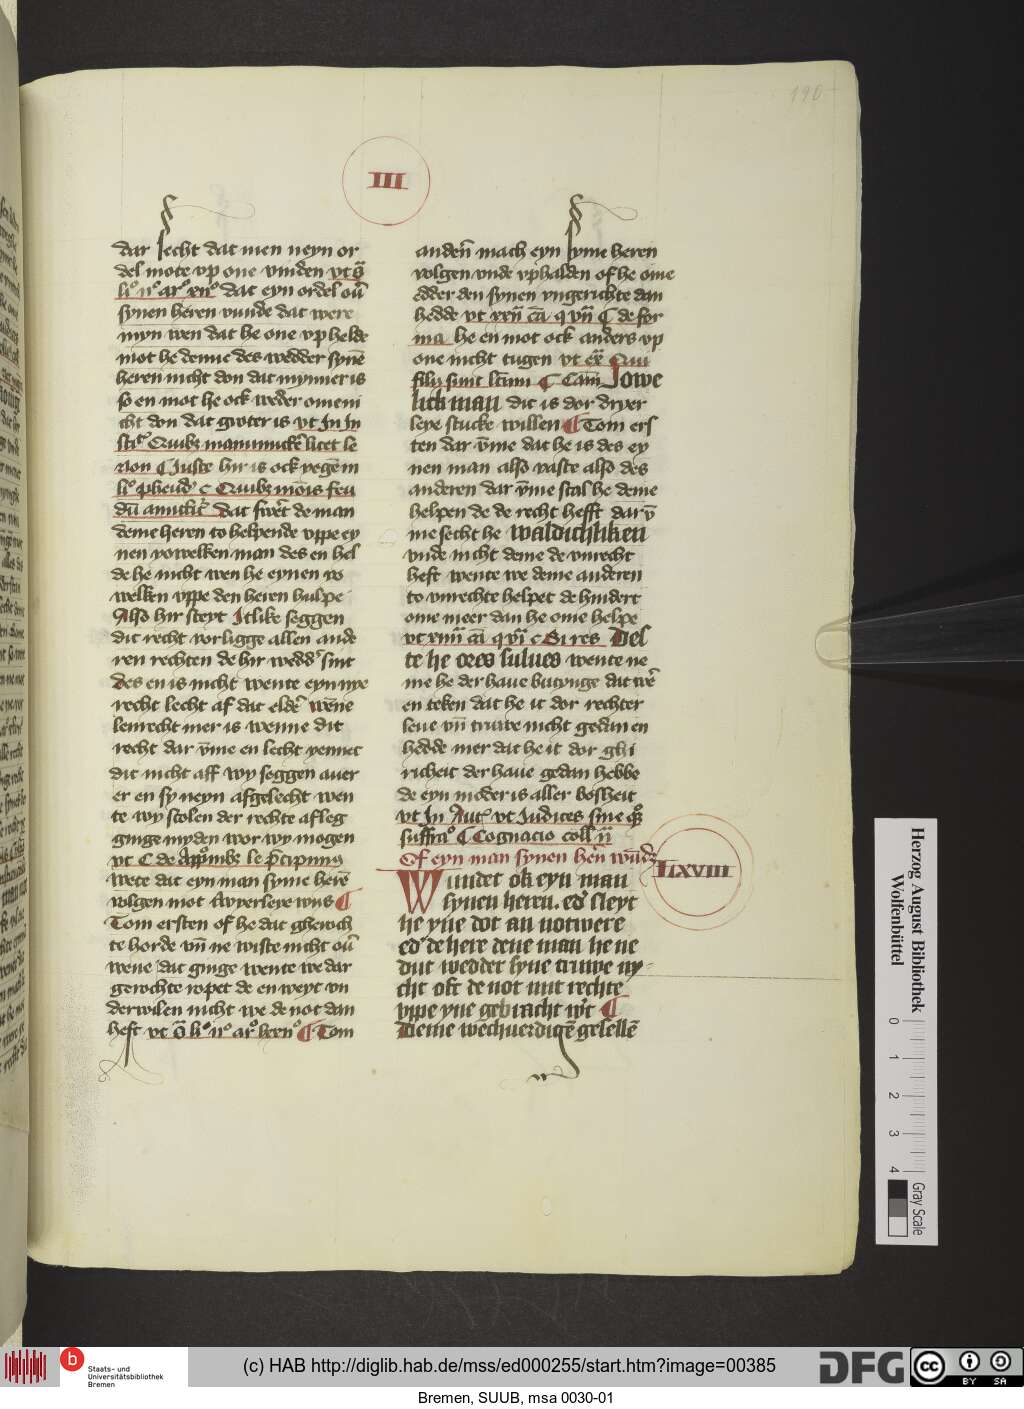 190
III
dar secht dat men neyn or
del mote vp one vinden vt s̄
li° ii° ar° xii° dat eyn ordel oū
synen heren vunde dat were
myn wen dat he one vp helde
mot he denne des wedder synē
heren nicht don dat mynner is
so en mot he ock weder omeni
cht don dat groter is vt In In
licet le
¶ Juste hir is ock yegē in
dū amittit̄ dat swer̄t de man
deme heren to helpende vppe ey
nen yowelken man des en hel
de he nicht wen he eynen yo
welken vppe den heren hulpe
Also hir steyt Itlike seggen
dit recht vorligge allen ande
ren rechten de hir wedd̄ sint
des en is nicht wente eyn nye
recht lecht af dat eldē wēne
lenrecht mer is wenne dit
recht dar v̄me en lecht yennet
dit nicht aff wy seggen auer
er en sy neyn afgelecht wen
te wy scolen der rechte afleg
ginge myden wor wy mogen
vt C de
Wete dat eyn man syme herē
volgen mot twyerleye wys ¶
Tom ersten of he dat gherch
te horde vn̄ ne wiste nicht oū
wene dat ginge wente we dar
gerochte ropet de en weyt vn
derwilen nicht we de not dan
heft vt ¶ Tom
anderē mach eyn syme heren
volgen vnde vphalden of he ome
edder den synen vngerichte dan
hedde vt xxii cā q vii C de for
ma he en mot ock anders vp
one nicht tugen vt ex̄ Qui
filij sunt ¶ Cam̄ Iowe
lich man dit is dor dryer
leye stucke willen ¶ Tom ers
ten dar v̄me dat he is des ey
nen man also vaste also des
anderen dar v̄me scal he deme
helpen de de recht hefft dar v̄
me secht he waldichliken
vnde nicht deme de vnrecht
heft wente we deme anderen
to vnrechte helpet de hindert
ome meer dan he ome helpe
vt xxiiii cā q vi c Si res Del
te he ores sulues wente ne
me he der haue butynge dat wē
en teken dat he it dor rechter
leue vn̄ truwe nicht gedan en
hedde mer dat he it dor ghi
richeit der haue gedan hebbe
de eyn moder is aller bosheit
vt In Aut̄ vt Judices sine
suffra° ¶ Cognacio coll̄
Of eyn man synen herē wūdz
LXVIII
Wundet ok eyn man
synen heren. ed̄ sleyt
he yne dot an notwere
ed̄ de here dene man he ne
dut wedder syne truwe ny=
cht oft de not mit rechte
vppe yne gebracht w̄t ¶
Deme wechuerdigē gesellē
Herzog August Bibliothek
Wolfenbüttel
0
1
2
3
4
Gray Scale
b
Staats- und
Universitätsbibliothek
Bremen
(c) HAB http://diglib.hab.de/mss/ed000255/start.htm?image=00385
DFG
cc
BY SA
Bremen, SUUB, msa 0030-01